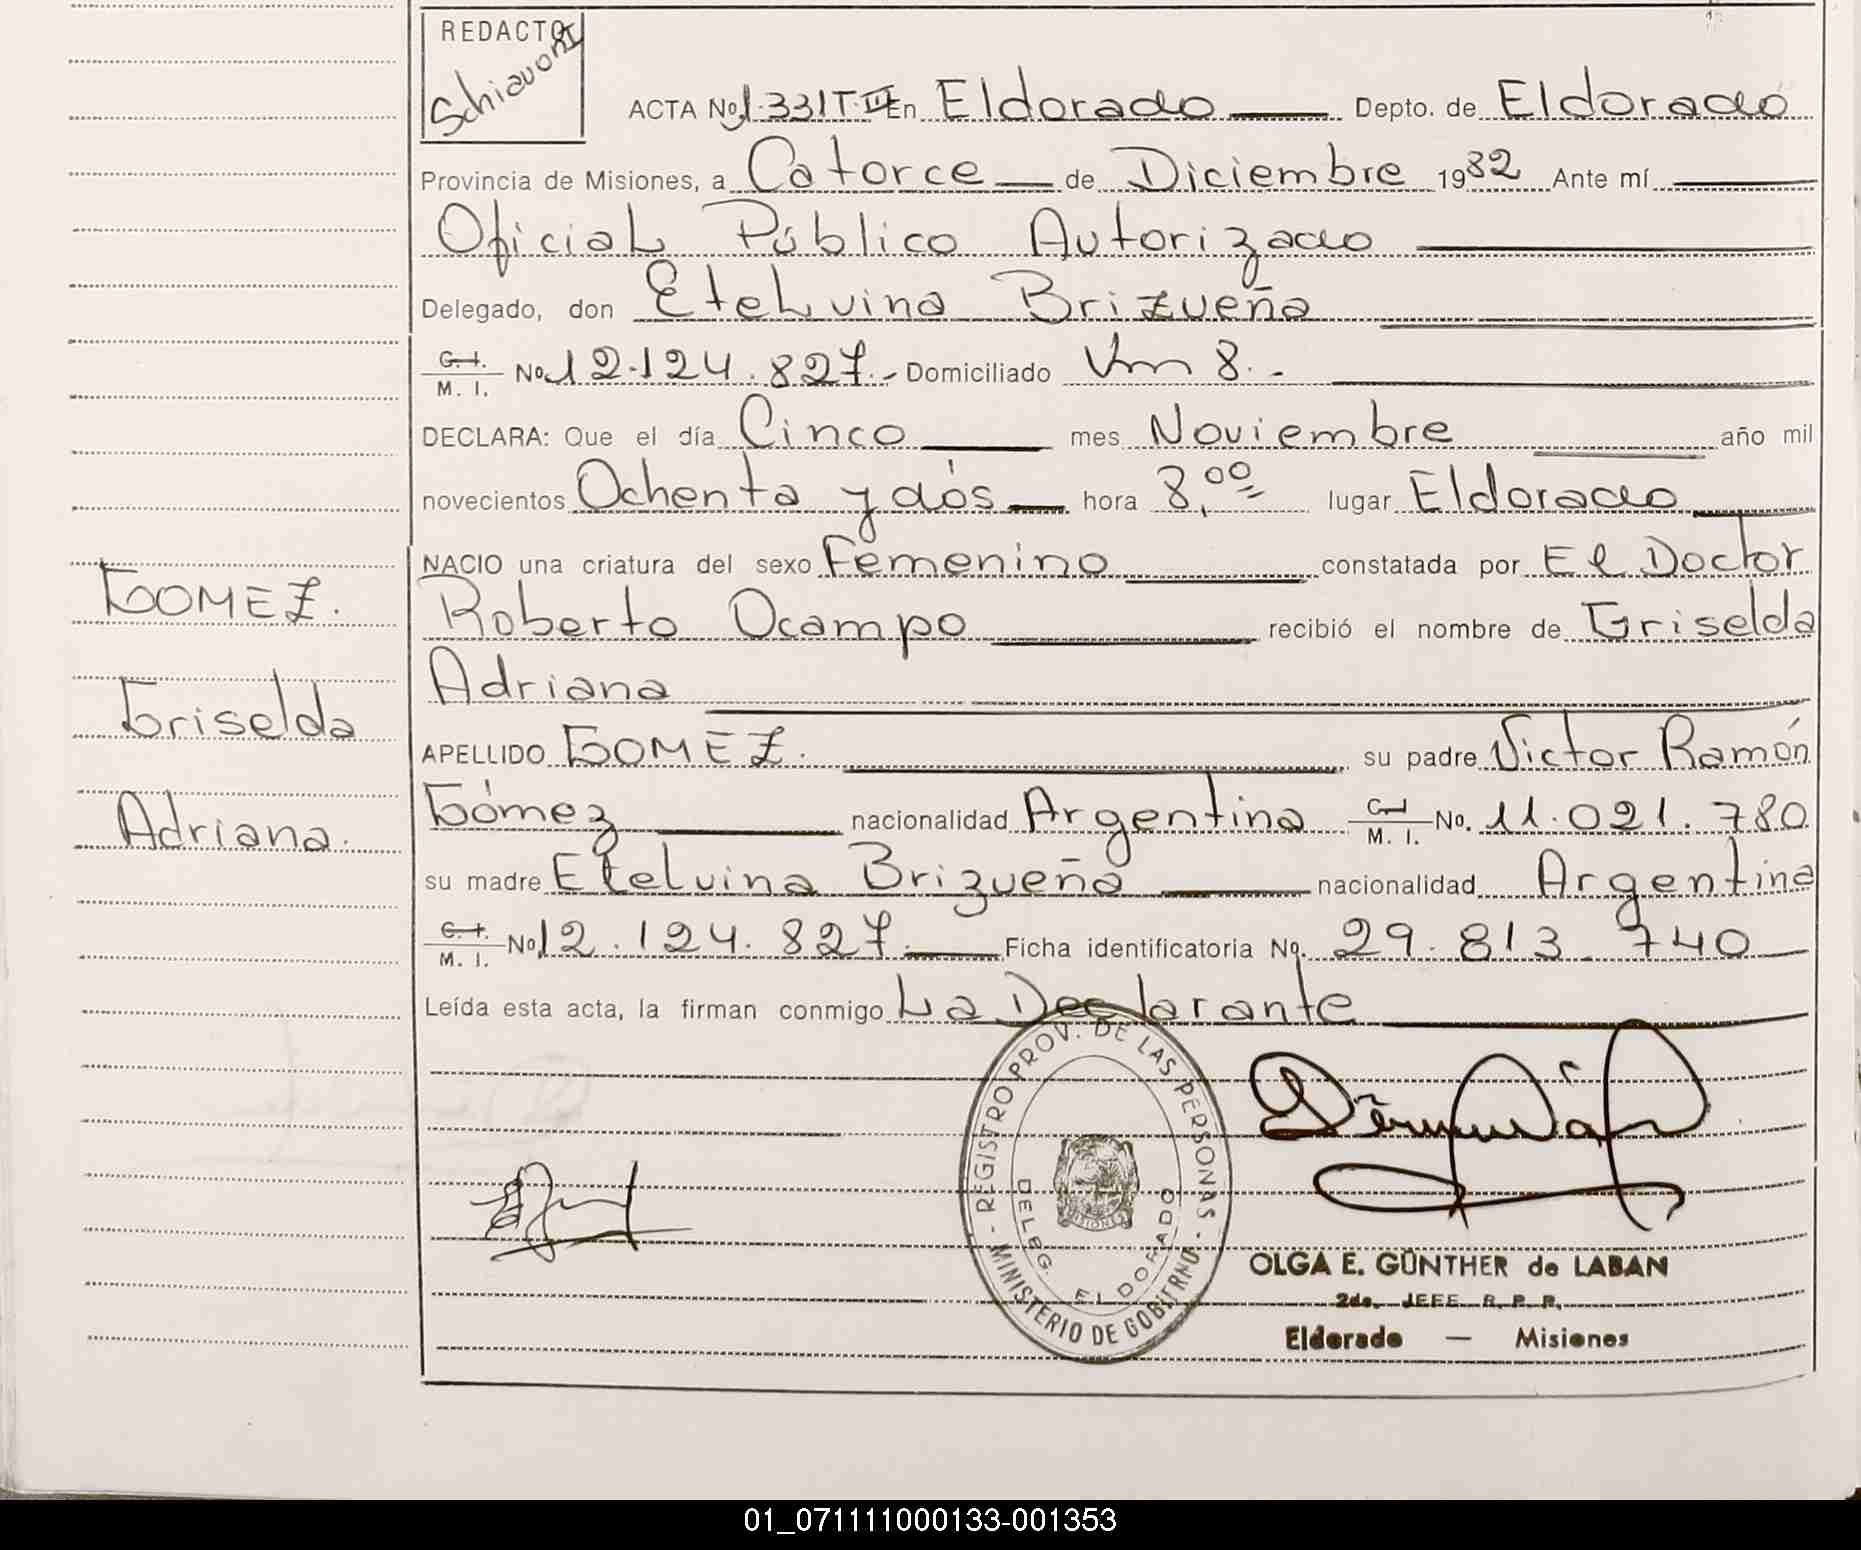 REDACTO
Schiavoni
ACTA No. 1.331 T. III En Eldorado Depto. de Eldorado
Provincia de Misiones, a Catorce de Diciembre 1982 Ante mí
Oficial Público Autorizado
Delegado, don Etelvina Brizueña
C. I.
M. I. No. 12.124.827.- Domiciliado Km 8.-
DECLARA: Que el día Cinco mes Noviembre año mil
novecientos Ochenta y dós hora 8,00 lugar Eldorado
NACIO una criatura del sexo Femenino constatada por El Doctor
Roberto Ocampo recibió el nombre de Griselda
Adriana
APELLIDO GOMEZ. su padre Victor Ramón
Gómez nacionalidad Argentina C. I. M. I. No. 11.021.780
su madre Etelvina Brizueña nacionalidad Argentina
C. I. M. I. No. 12.124.827. Ficha identificatoria No. 29.813.740
Leída esta acta, la firman conmigo La Declarante
GOMEZ.
Griselda
Adriana.
- REGISTRO PROV. DE LAS PERSONAS -
MINISTERIO DE GOBIERNO
DELEG. ELDORADO
MISIONES
OLGA E. GÜNTHER de LABAN
2da. JEFE R. P. P.
Eldorado — Misiones
01_071111000133-001353